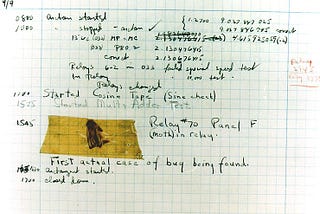 9/9
0800 antan started
1000 " stopped - antan ✓ { 1.2700 9.037 847 025
9.037 846 995 correct
13"uc (032) MP - MC 4.615925059(-2)
033 PRO 2 2.130476415
correct 2.130676415
Relays 6-2 in 033 failed special speed test
in Relay " test.
Relays changed
1100 Started Cosine Tape (Sine check)
1525 Started Multi Adder Test.
1545 Relay #70 Panel F
(moth) in relay.
First actual case of bug being found.
antangent started.
1700 closed down.
Relay